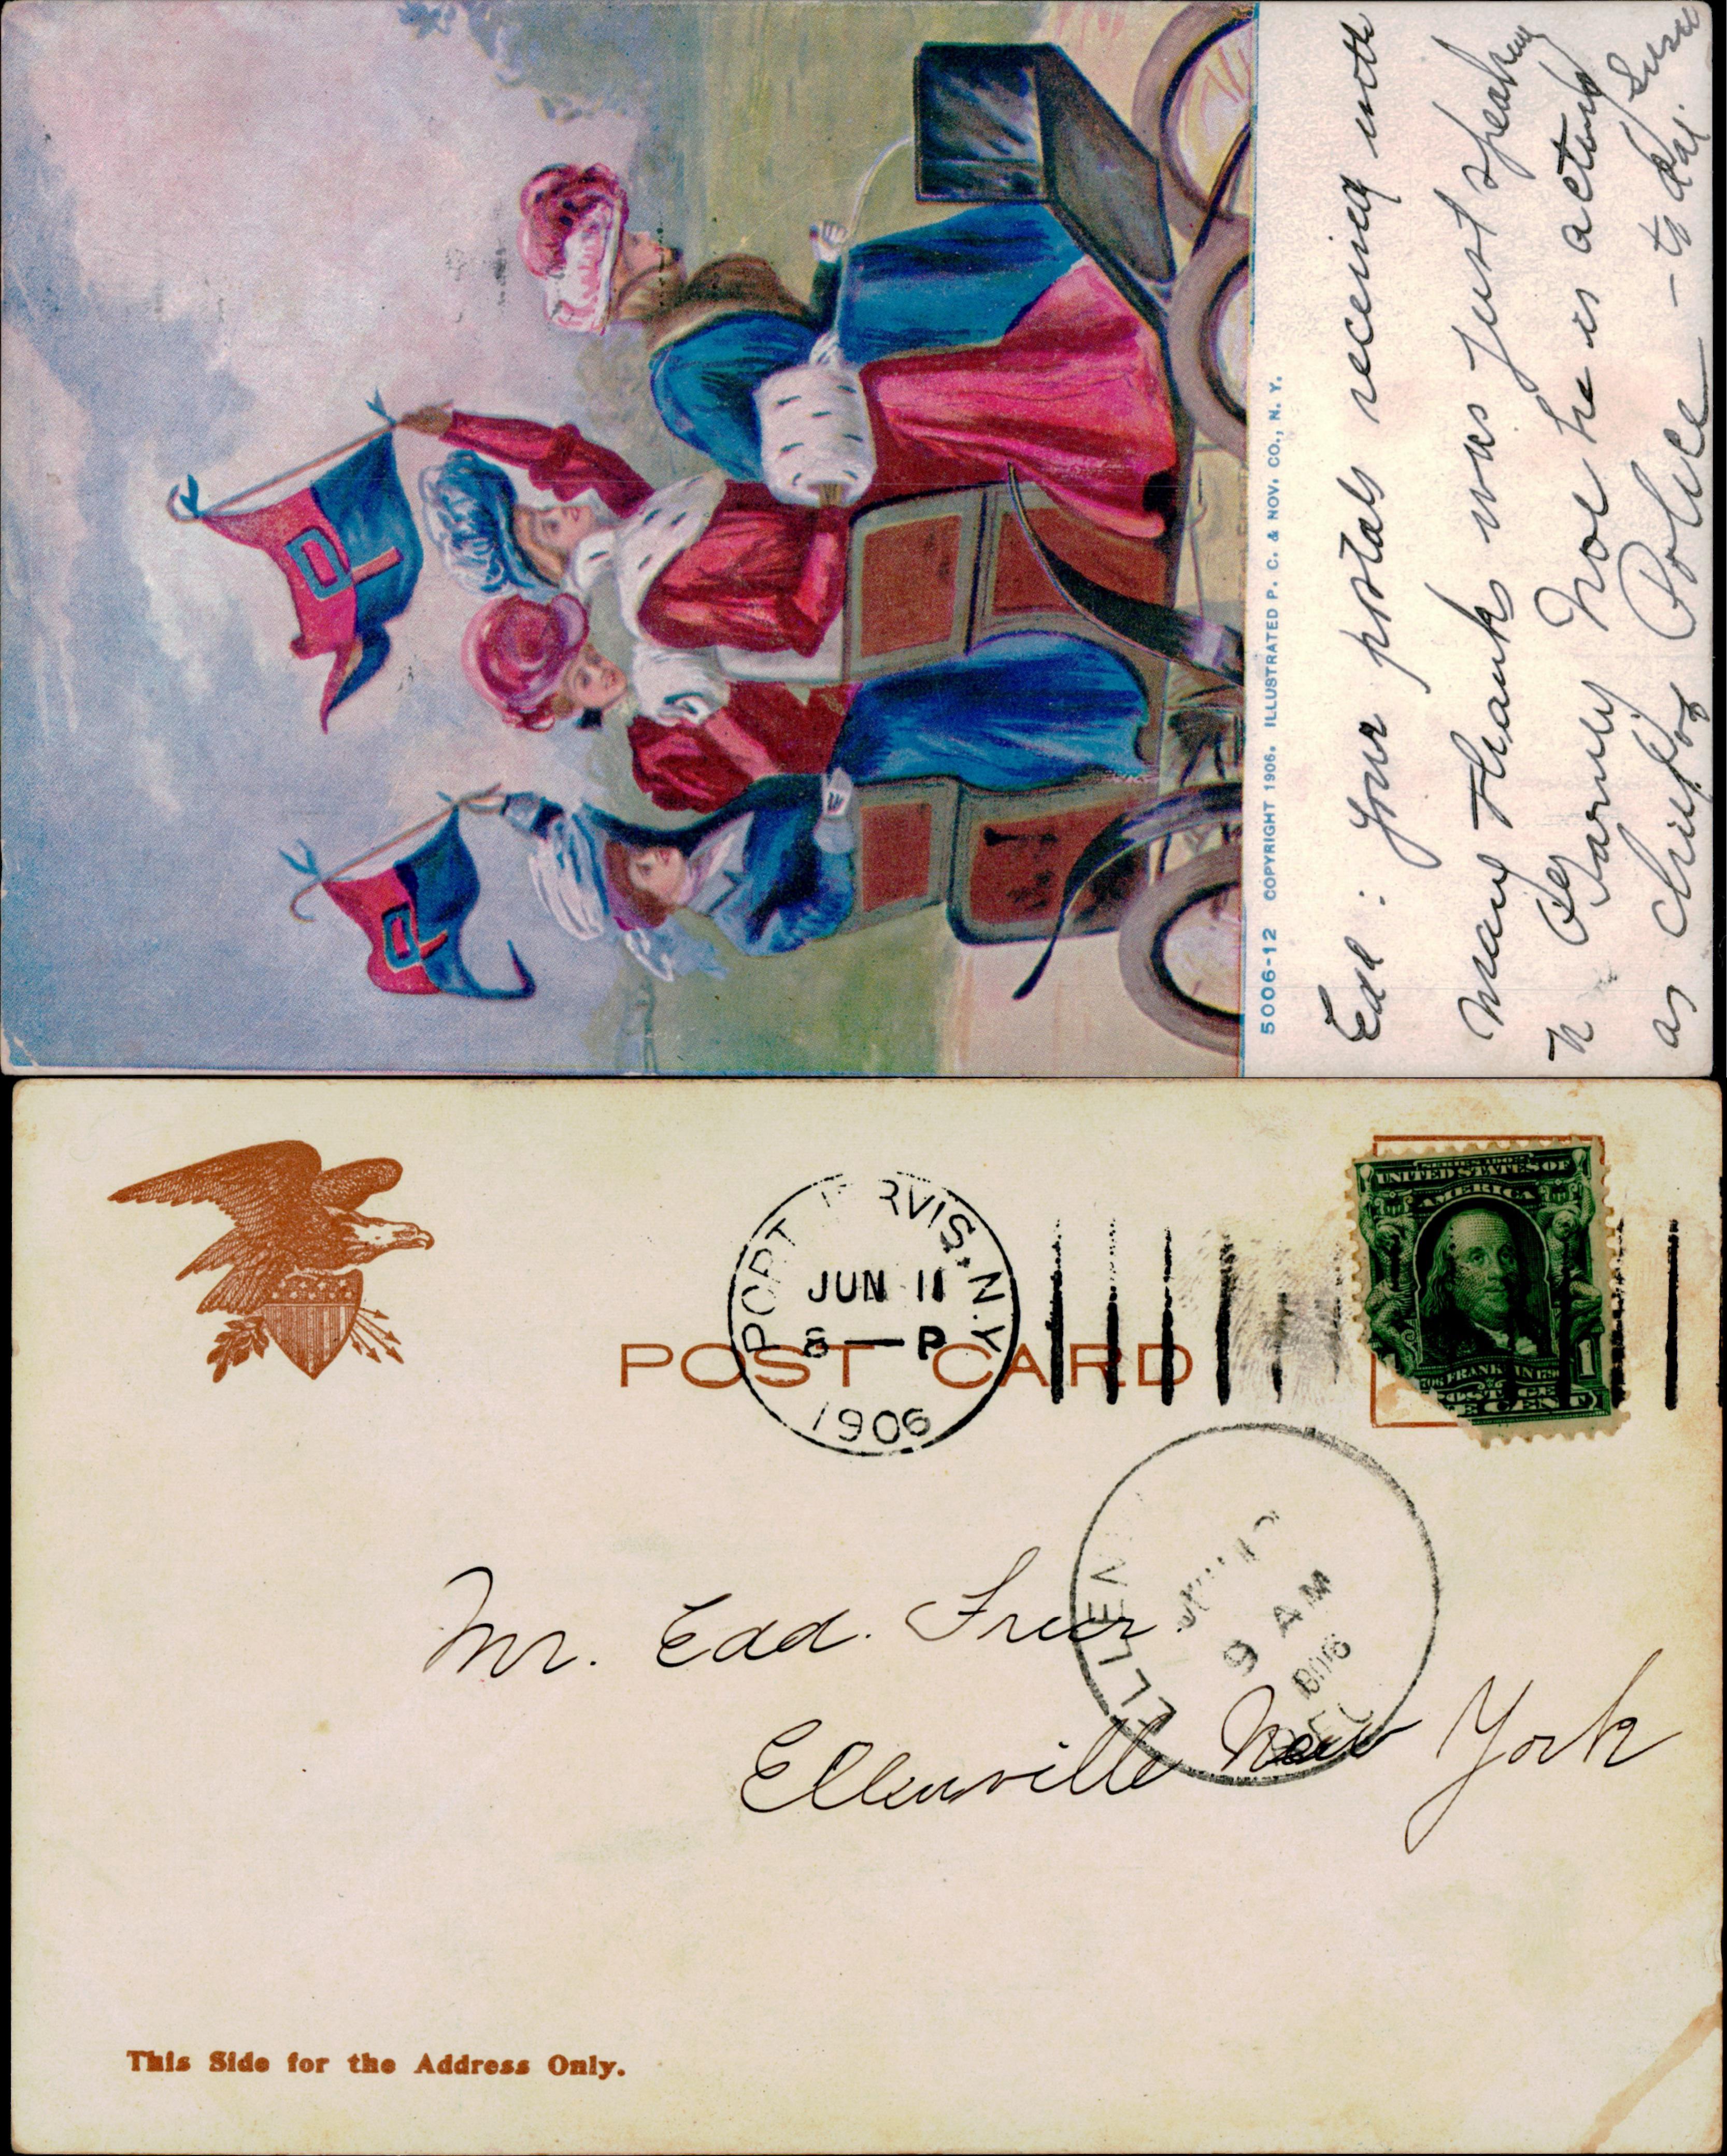 5006-12 COPYRIGHT 1906. ILLUSTRATED P. C. & NOV. CO., N. Y.
Edd: Your postals receiving with
many thanks was just speaking
he is acting
as Chief of Police – to day.
POST CARD
PORT JERVIS, N.Y.
JUN 11
8 – P
1906
SERIES 1902
UNITED STATES OF
AMERICA
FRANKLIN
1
CENT
ELLEN
9 AM
1906
REC'D
Mr. Edd. Freer.
Ellenville New York
This Side for the Address Only.